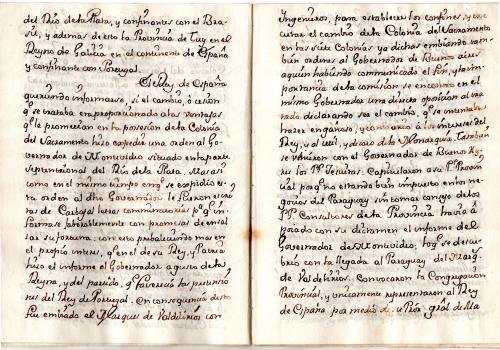 del Rio de la Plata, y confinantes con el Bra-
sil, y ademas de esto la Provincia de Tuy en el
Reyno de Galicia en el continente de España
y confinante con Portugal.
El Rey de España
queriendo informarse, si el cambio, ò cesion
qe. se trataba era proporcionado a las ventajas
qe. le prometian en la possesion de la Colonia
del Sacramento hizo expedir una orden al Go-
vernador de Montevideo situado en la parte
septentrional del Rio de la Plata. Mas asi
como en el mismo tiempo en qe. se expidiò es-
ta orden al dho Governador le fueron escri-
tas de Carbajal las pa. qe. in
formase favorablemente con promesas de ensal
sar su fortuna. con esto prevaleciendo mas en
el proprio interes, qe. en el de su Rey, y Patria
hizo el informe el Governador a gusto de la
Reyna, y del partido, qe. favorecia las pretensio
nes del Rey de Portugal. En consequencia de esto
fue embiado el Marques de Valdelirios con
Ingenieros, para establecer los confines, y exe
cutar el cambio de la Colonia del Sacramento
en las siete Colonias ya dichas embiando tam-
bien ordenes al Governador de Buenos aires
a quien habiendo communicado el fin, y la im-
portancia de la comision se encontrò en el
mismo Governador una directa oposicion al tra-
tado declarando ser el cambio, qe. se intentaba
hazer engañoso, y contrario à los intereses del
Rey, y al util, y decoro de la Monarquia. Tambien
se unieron con el Governador de Buenos Ay-
res los PP. Jesuitas. Capitularon a su Pe. Provin
cial porqe. no estando bien impuesto en los ne-
gocios del Paraguay sin tomar consejo de los
PP. Consultores de la Provincia havia a-
poiado con su dictamen el informe del
Governador de Montevideo, lo qe. se descu-
briò con la llegada al Paraguay del Marqs.
de Valdelirios. Convocaron la Congregacion
Provincial, y unicamente representaron al Rey
de España por medio de su Pror. gral de Ma